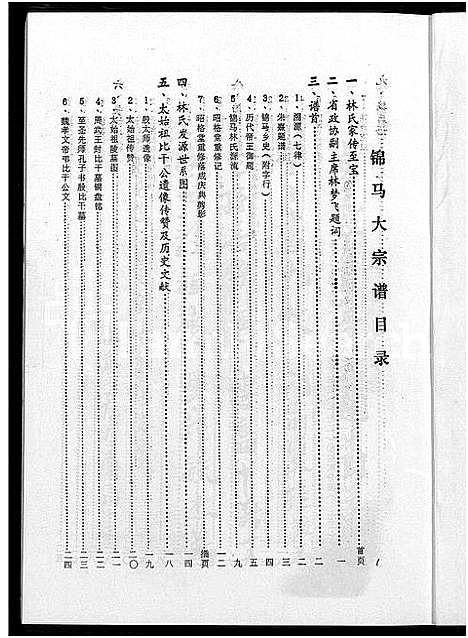 锦马大宗谱目录
一、林氏家传至宝……首页
二、省政协副主席林梦飞题词……一
三、谱首……二
1、溯源（七律）……二
2、朱熹题谱……三
3、锦马乡史（附字行）……四
4、历代帝王御题……五
5、锦马林氏源流……九
6、昭格堂重修记……一二
7、昭格堂重修落成庆典剪影……插页
四、林氏发源世系图……一四
五、太始祖比干公遗像传赞及历史文献……一八
1、殷太师遗像……一九
2、太始祖传赞……二〇
3、太始祖殷墓图……二一
4、周武王封比干墓铜盘铭……二二
5、至圣先师孔子书殷比干墓……二三
6、魏孝文帝吊比干公文……二四